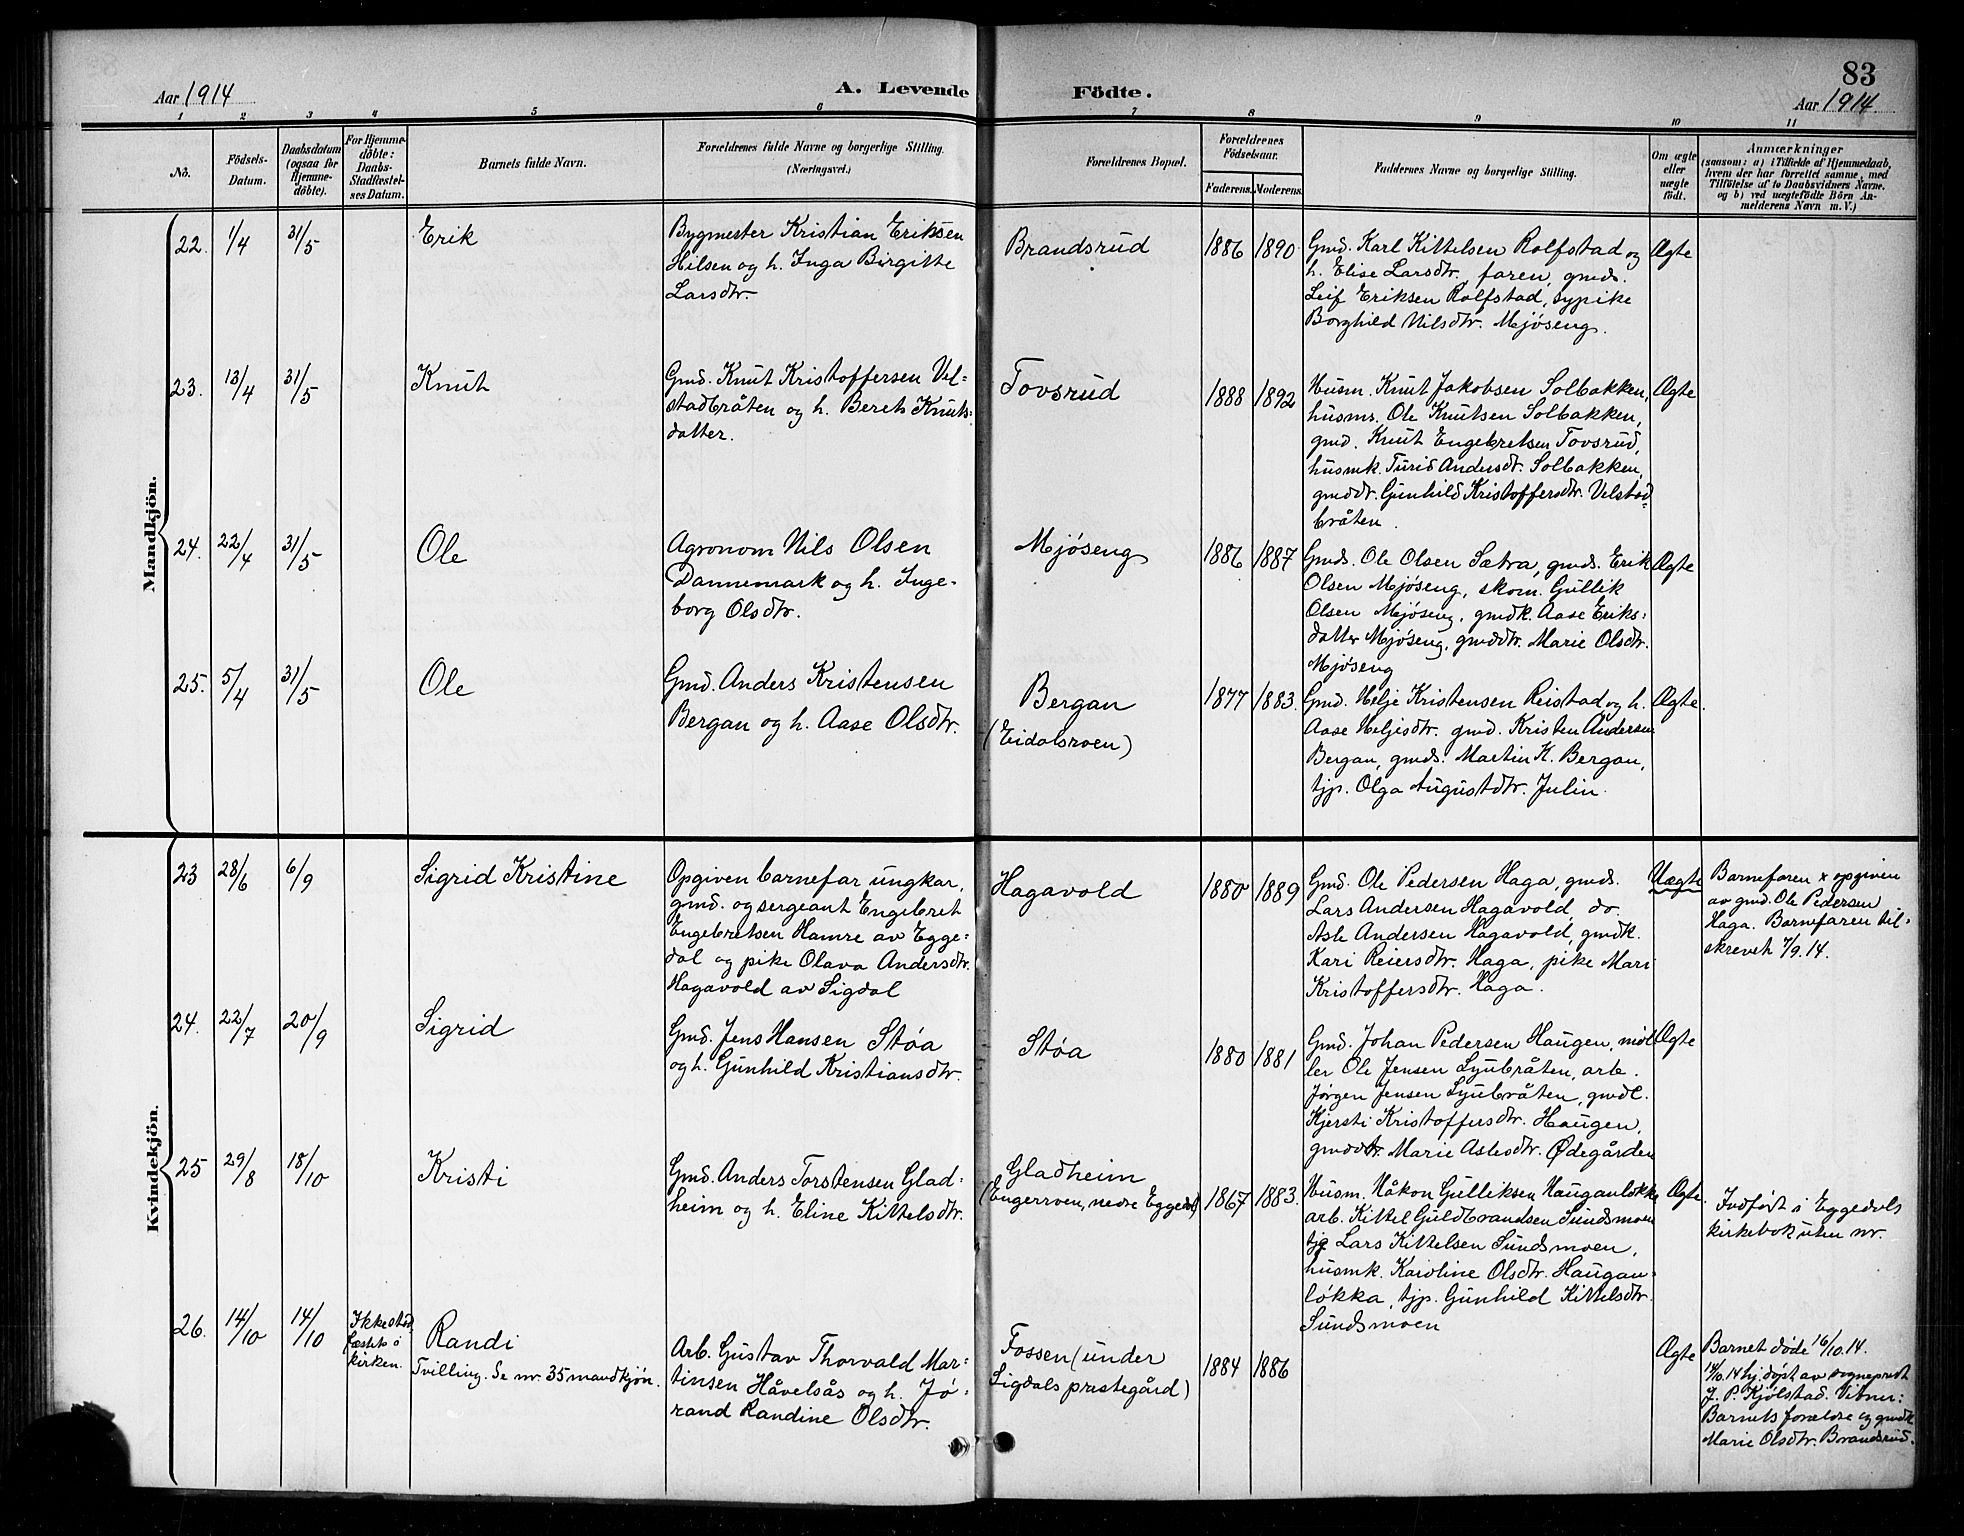 83
Aar 1914
A. Levende
Födte.
Aar 1914
1 2 3 4 5 6 7 8 9 10 11
No.
Födsels-
Datum.
Daabsdatum
(ogsaa for
Hjemme-
döbte).
For Hjemme-
döbte:
Daabs-
Stadfæstel-
ses Datum.
Barnets fulde Navn.
Forældrenes fulde Navne og borgerlige Stilling.
(Næringsvei.)
Forældrenes Bopæl.
Forældrenes
Födselsaar.
Faderens.
Moderens.
Faddernes Navne og borgerlige Stilling.
Om ægte
eller
uægte
födt.
Anmærkninger
(saasom: a) i Tilfælde af Hjemmedaab,
hvem der har forrettet samme, med
Tilföielse af to Daabsvidners Navne.
og b) ved uægtefödte Börn An-
melderens Navn m. V.)
Mandkjön.
22. 1/4 31/5
Erik
Bygmester Kristian Eriksen
Hilsen og h. Inga Birgitte
Larsdtr.
Brandsrud
1886 1890
Gmd. Karl Kittelsen Rolfstad og
h. Elise Larsdtr., faren, gmds.
Leif Eriksen Rolfstad, sypike
Borghild Nilsdtr. Mjøseng.
Ægte
23. 13/4 31/5
Knut
Gmd. Knut Kristoffersen Vel=
stadbråten og h. Beret Knuts=
datter.
Tovsrud
1888 1892
Husm. Knut Jakobsen Solbakken,
husms. Ole Knutsen Solbakken,
gmd. Knut Engebretsen Tovsrud,
husmk. Turid Andersdtr. Solbakken,
gmddt. Gunhild Kristoffersdtr. Velstad=
bråten.
Ægte
24. 22/4 31/5
Ole
Agronom Nils Olsen
Dannemark og h. Inge=
borg Olsdtr.
Mjøseng
1886 1887
Gmds. Ole Olsen Sætra, gmds. Erik
Olsen Mjøseng, skom. Gullik
Olsen Mjøseng, gmdk. Aase Eriks=
datter Mjøseng, gmddtr. Marie Olsdtr.
Mjøseng
Ægte
25. 5/4 31/5
Ole
Gmd. Anders Kristensen
Bergan og h. Aase Olsdtr.
Bergan
(Eidalsroen)
1877 1883.
Gmd. Helje Kristensen Reistad og h.
Aase Heljesdtr. gmd. Kristen Andersen
Bergan, gmds. Martin K. Bergan,
tjp. Olga Augustdtr. Julin.
Ægte.
Kvindekjön.
23 28/6 6/9
Sigrid Kristine
Opgiven barnefar ungkar,
gmd. og sergeant Engebret
Engebretsen Hamre av Egge=
dal og pike Olava Andersdtr.
Hagavold av Sigdal
Hagavold
1880 1889
Gmd. Ole Pedersen Haga, gmds.
Lars Andersen Hagavold, do.
Asle Andersen Hagavold, gmdk.
Kari Reiersdtr. Haga, pike Mari
Kristoffersdtr. Haga.
Uægte
Barnefaren x opgiven
av gmd. Ole Pedersen
Haga. Barnefaren til=
skrevet 7/9.14.
24. 22/7 20/9
Sigrid
Gmd. Jens Hansen Støa
og h. Gunhild Kristiansdtr.
Støa
1880 1881
Gmd. Johan Pedersen Haugen, møl
ler Ole Jensen Lyubråten, arb.
Jørgen Jensen Lyubråten, gmdk.
Kjersti Kristoffersdtr. Haugen,
gmddtr. Marie Aslesdtr. Ødegården
Ægte
25 29/8 18/10
Kristi
Gmd. Anders Torstensen Glad=
heim og h. Eline Kittelsdtr.
Gladheim
(Engerroen, nedre Eggedal)
1867 1883.
Husm. Håkon Gulliksen Hauganløkka
arb. Kittel Guldbrandsen Sundsmoen
tjg Lars Kittelsen Sundsmoen,
husmk. Karoline Olsdtr. Haugan=
løkka, tjp. Gunhild Kittelsdtr.
Sundsmoen
Ægte.
Indført i Eggedals
kirkebok uten nr.
26. 14/10 14/10
Ikke stad
fæstet i
kirken.
Randi
Tvilling. Se nr. 35 mandkjøn.
Arb. Gustav Thorvald Mar=
tinsen Håvelsås og h. Jø=
rand Randine Olsdtr.
Fossen (under
Sigdals prestegård)
1884 1886
Ægte
Barnet døde 16/10.14.
14/10.14 hj.døpt av sogneprest
J. P. Kjølstad. Vitner:
Barnets forældre og gmdk
Marie Olsdtr. Brandsrud.